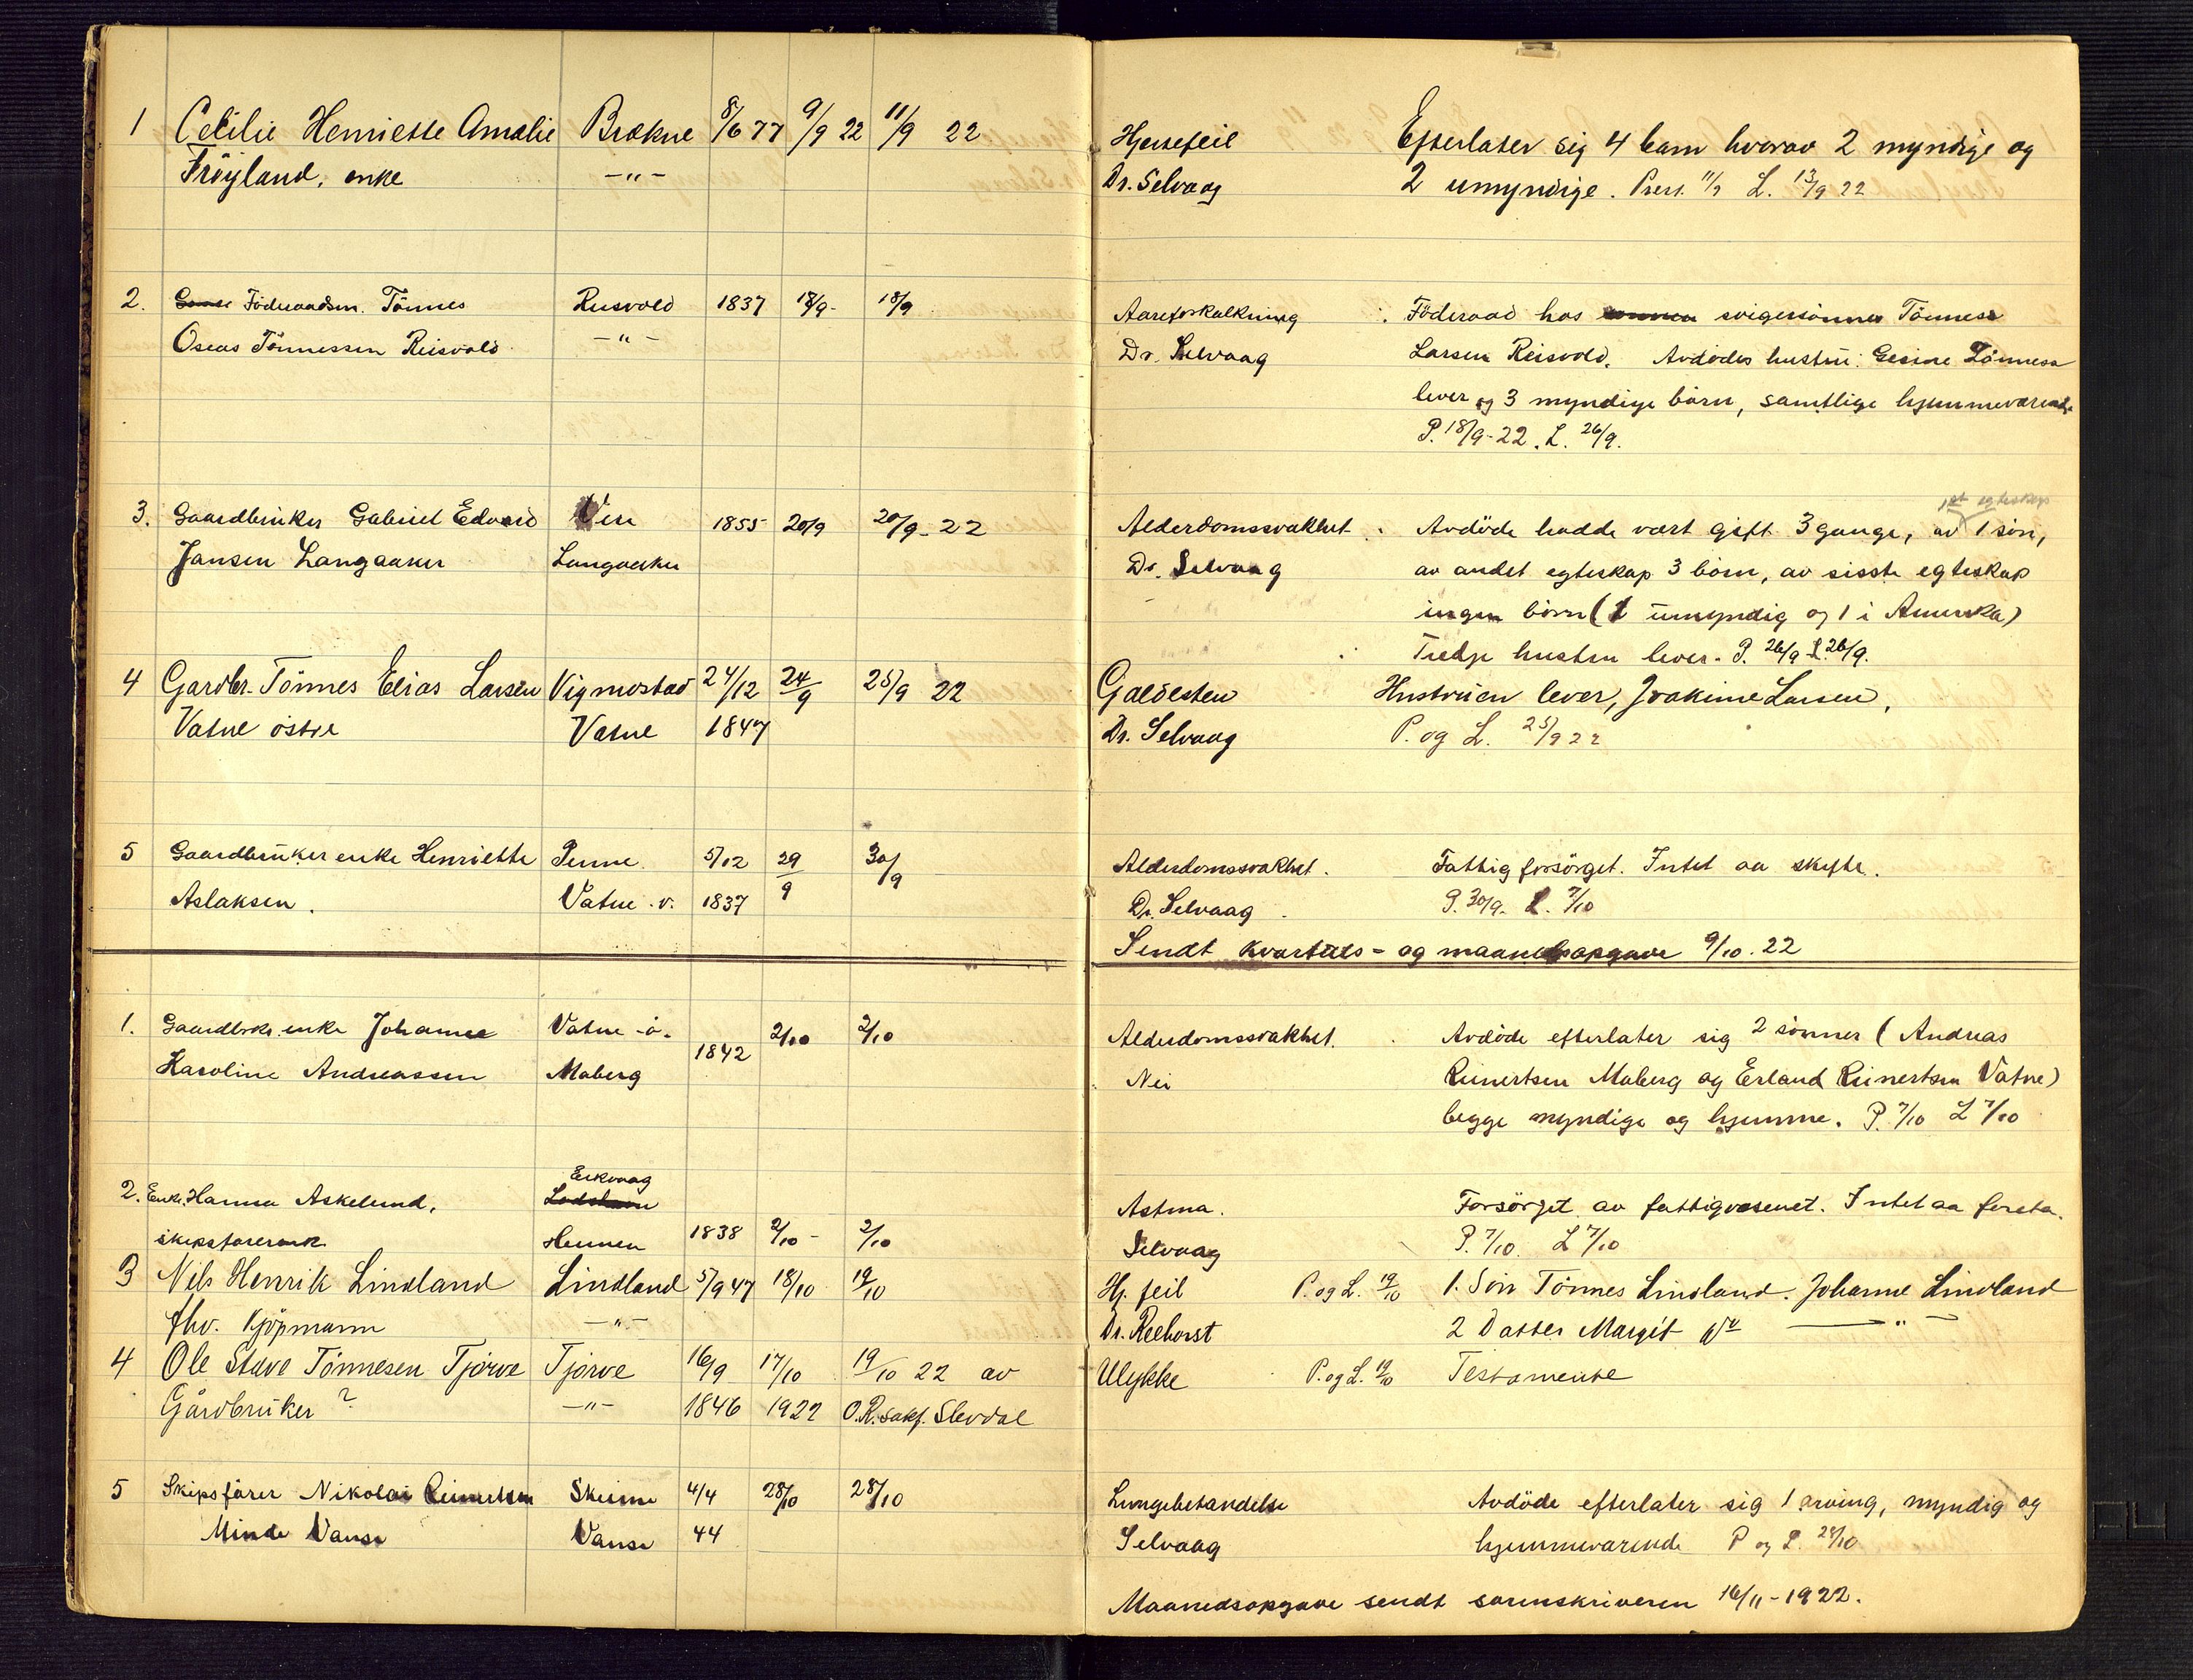 1 Cecilie Henriette Amalie Brekne 8/6 77 9/9 22 11/9 22
Fröyland, enke -"-
2. Föderaadsm. Tönnes Rusvold 1837 18/9 - 18/9
Oseas Tönnessen Reisvold -"-
3. Gaardbruker Gabriel Edvard 1855 20/9 20/9 - 22
Jansen Langaaker Langaaker
4 Gardbr. Tönnes Elias Larsen Vigmostad 24/12 24/9 25/9 22
Vatne östre Vatne 1847
5 Gaardbrukerenke Henriette Penne 5/12 29/9 30/9
Aslaksen. Vatne. v. 1837
1. Gaardbrks. enke Johanne Vatne - ö. 1842 2/10 2/10
Karoline Andreassen Maberg
Eikvaag
2. Enke Hanna Askelund, Lodshavn
skipsförerenk. Hennen 1838 2/10 - 2/10
3 Nils Henrik Lindland Lindland 5/9 47 18/10 19/10
fhv. Kjöpmann -"-
4 Ole Stave Tönnesen Tjörve Tjörve 16/9 17/10 19/10 22 av
Gårdbruker ? -"- 1846 1922 O.R. sakf. Slevdal
5 Skipsförer Nikolai Reinertsen Skeime 4/4 28/10 28/10
Minde Vanse Vanse 44
Hjertefeil Efterlater sig 4 barn hvorav 2 myndige og
Dr. Selvaag 2 umyndige. Pres. 11/9 L. 13/9 22
Aareforkalkning Föderaad hos svigersönnen Tönnes
Dr. Selvaag Larsen Reisvold. Avdödes hustru: Gesine Tönnessen
lever og 3 myndige börn, samtlige hjemmeværende
P. 18/9 - 22. L. 26/9.
1st egteskap
Alderdomssvakhet Avdöde hadde vært gift 3 gange, av 1 sön,
Dr. Selvaag av andet egteskap 3 börn, av sisste egteskap
ingen börn (1 umyndig og 1 i Amerika)
Tredje hustru lever. P. 26/9 L. 26/9.
Galdesten Hustruen lever, Joakime Larsen.
Dr. Selvaag P. og L. 25/9 22
Alderdomssvakhet. Fattigforsörget. Intet aa skifte.
Dr. Selvaag P. 30/9. L. 7/10
Sendt kvartals- og maanedsopgave 9/10. 22
Alderdomssvakhet. Avdöde efterlater sig 2 sönner (Andreas
Nei Reinertsen Maberg og Erland Reinertsen Vatne)
begge myndige og hjemme. P. 7/10 L 7/10
Astma. Forsörget av fattigvæsenet. Intet aa foreta.
Selvaag P. 7/10. L 7/10
Hj. feil P. og L. 19/10 1. Sön Tönnes Lindland. Johanne Lindland
Dr. Reehorst 2 Datter Margit -"-
Ulykke P. og L. 19/10 Testamente
Lungebetændelse Avdöde efterlater sig 1 arving, myndig og
Selvaag hjemmeværende P og L. 28/10
Maanedsopgave sendt sorenskriveren 16/11 - 1922.